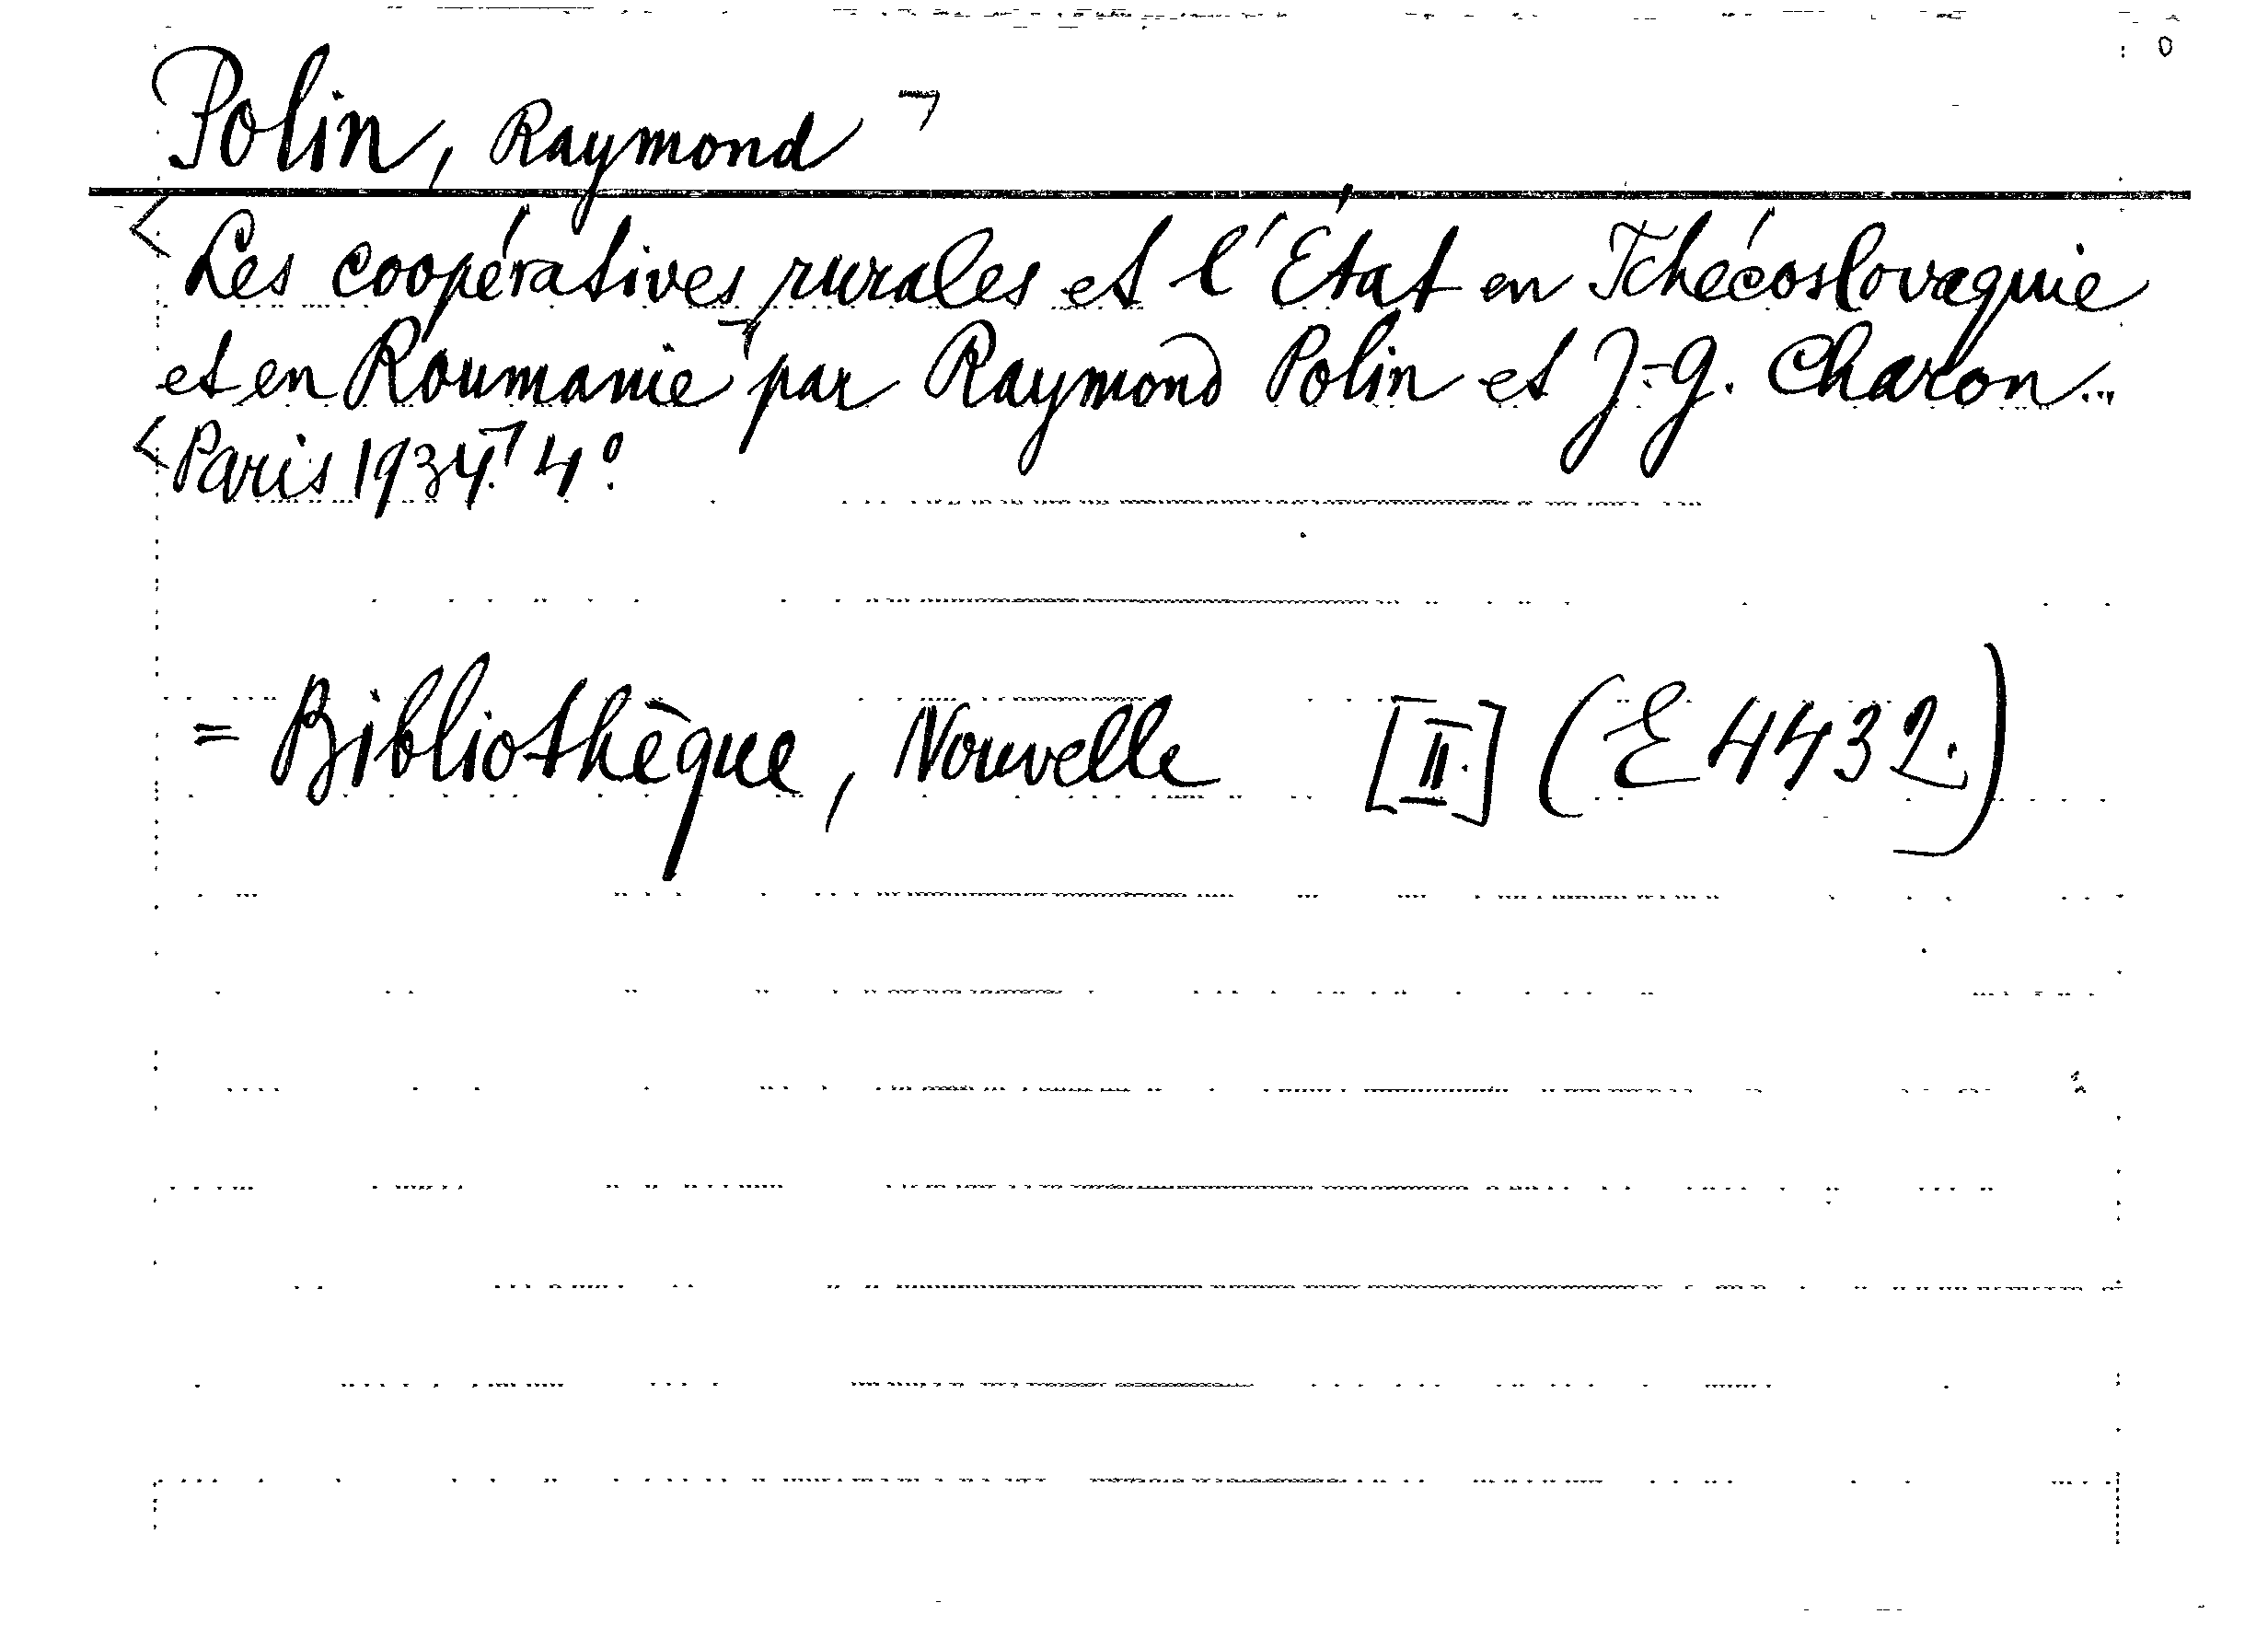 Polin, Raymond
Les coopératives rurales et l'État en Tchécoslovaquie
et en Roumanie par Raymond Polin et J.-G. Charon...
Paris 1934. 4°.
= Bibliothèque, Nouvelle [II.] (E 4432.)